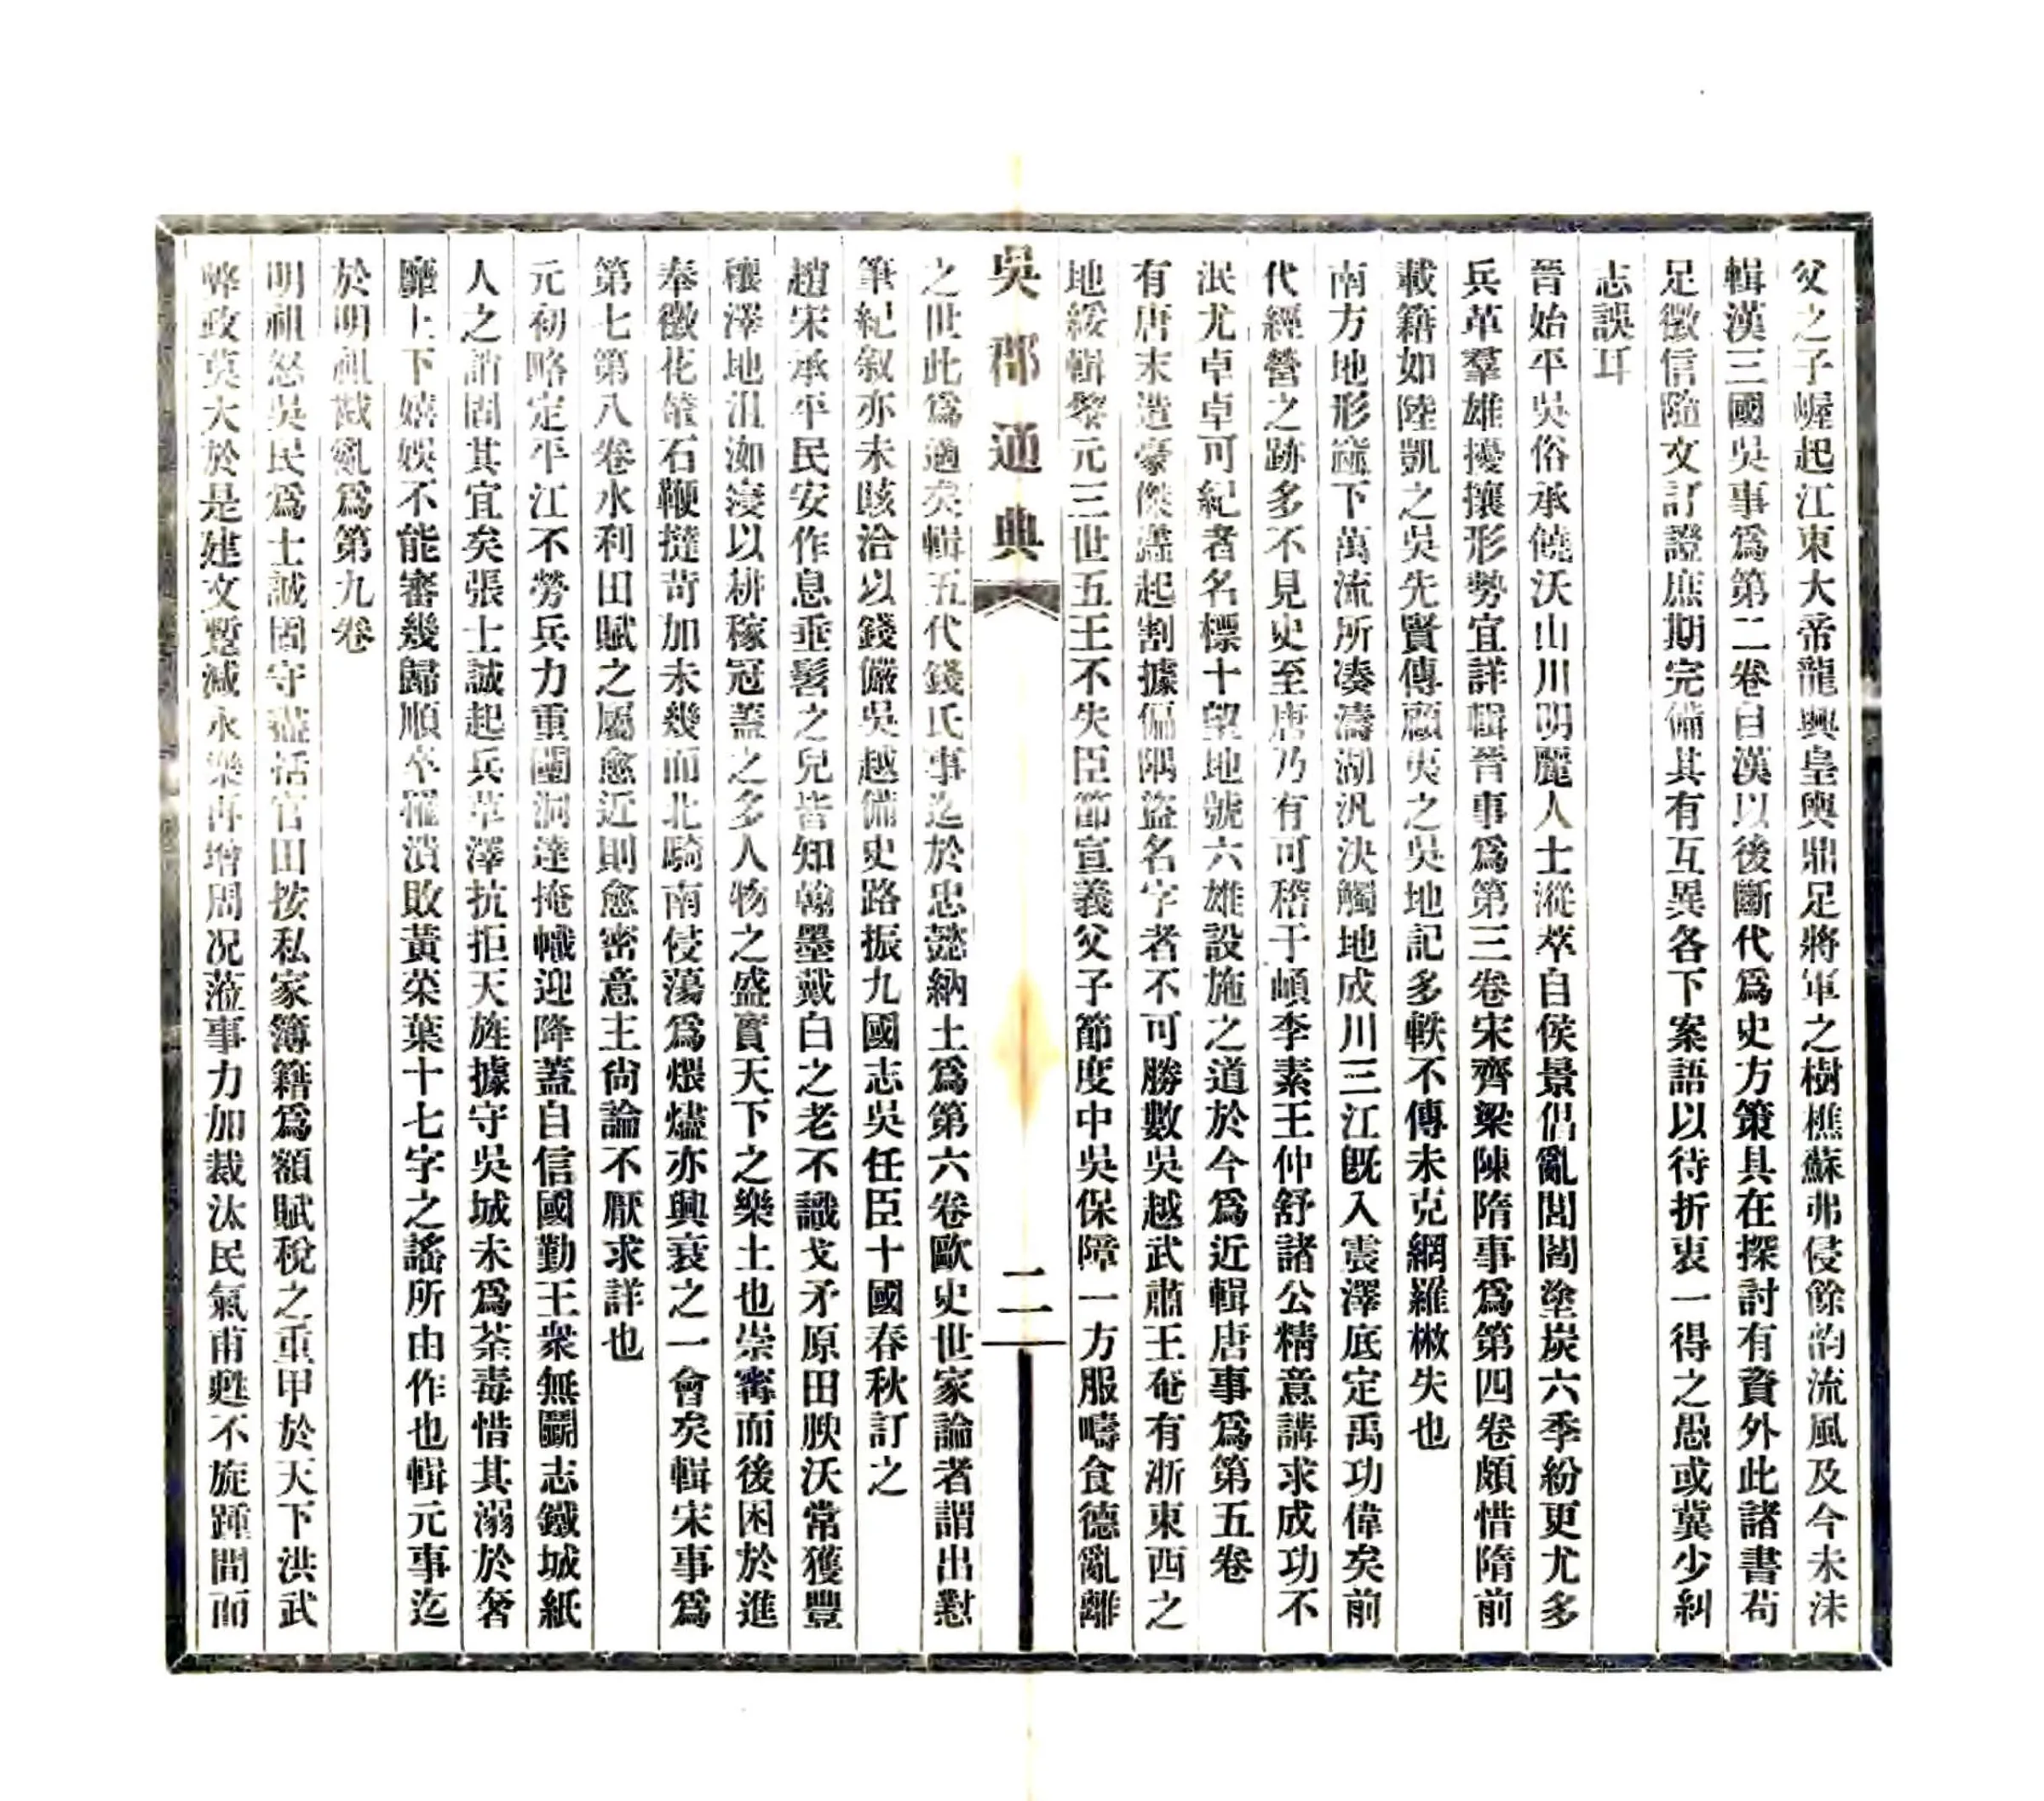 父之子崛起江東大帝龍興皇輿鼎足將軍之樹樵蘇弗侵餘韵流風及今未沫
輯漢三國吳事爲第二卷自漢以後斷代爲史方策具在探討有資外此諸書苟
足徵信隨文訂證庶期完備其有互異各下案語以待折衷一得之愚或冀少糾
志誤耳
晉始平吳俗承饒沃山川明麗人士漎萃自侯景倡亂閭閻塗炭六季紛更尤多
兵革羣雄擾攘形勢宜詳輯晉事爲第三卷宋齊梁陳隋事爲第四卷頗惜隋前
載籍如陸凱之吳先賢傳顧夷之吳地記多軼不傳未克網羅楸失也
南方地形窳下萬流所凑濤湖汎決觸地成川三江旣入震澤底定禹功偉矣前
代經營之跡多不見史至唐乃有可稽于頔李素王仲舒諸公精意講求成功不
泯尤卓卓可紀者名標十望地號六雄設施之道於今爲近輯唐事爲第五卷
有唐末造豪傑蠭起割據偏隅盜名字者不可勝數吳越武肅王奄有浙東西之
地綏輯黎元三世五王不失臣節宣義父子節度中吳保障一方服疇食德亂離
吳郡通典
二
之世此爲適矣輯五代錢氏事迄於忠懿納土爲第六卷歐史世家論者謂出懟
筆紀叙亦未賅洽以錢儼吳越備史路振九國志吳任臣十國春秋訂之
趙宋承平民安作息垂髫之兒皆知翰墨戴白之老不識戈矛原田腴沃常獲豐
穰澤地沮洳寖以耕稼冠蓋之多人物之盛實天下之樂土也崇寗而後困於進
奉徵花輦石鞭撻苛加未幾而北騎南侵蕩爲煨燼亦興衰之一會矣輯宋事爲
第七第八卷水利田賦之屬愈近則愈密意主尙論不厭求詳也
元初略定平江不勞兵力重闉洞達掩幟迎降蓋自信國勤王衆無鬭志鐵城紙
人之誚固其宜矣張士誠起兵草澤抗拒天旌據守吳城未爲荼毒惜其溺於奢
靡上下嬉娛不能審幾歸順卒罹潰敗黃菜葉十七字之謠所由作也輯元事迄
於明祖戡亂爲第九卷
明祖怒吳民爲士誠固守藉括官田按私家簿籍爲額賦稅之重甲於天下洪武
弊政莫大於是建文蹔減永樂再增周況蒞事力加裁汰民氣甫甦不旋踵間而